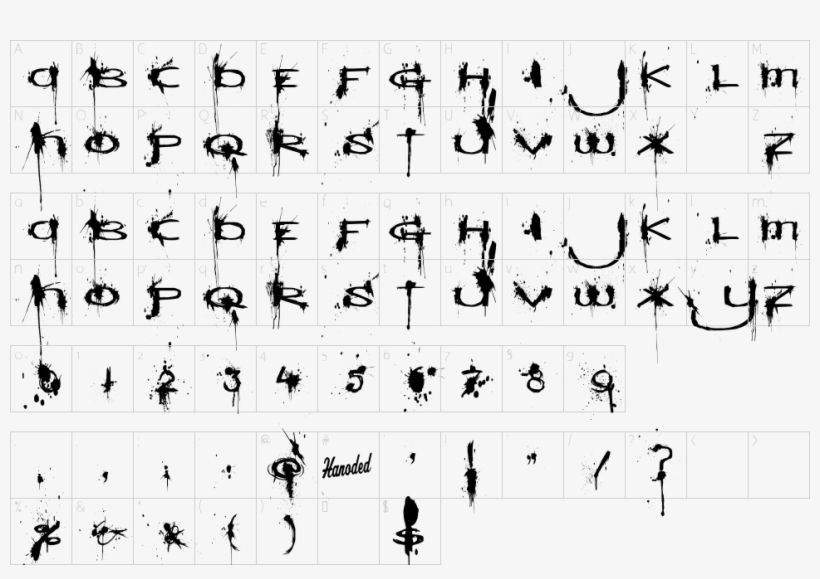 A B C D E F G H I J K L M
a B C D E F G H I J K L m
N O P Q R S T U V W X Y Z
n o P Q R S T U V W X Z
a b c d e f g h i j k l m
a B C D E F G H I J K L m
n o p q r s t u v w x y z
n o P Q R S T U V W X y Z
0 1 2 3 4 5 6 7 8 9
0 1 2 3 4 5 6 7 8 9
@ # / ? < >
. , ; : @ Hanoded ' ! " / ?
% & * ( ) $
% & * ( ) $